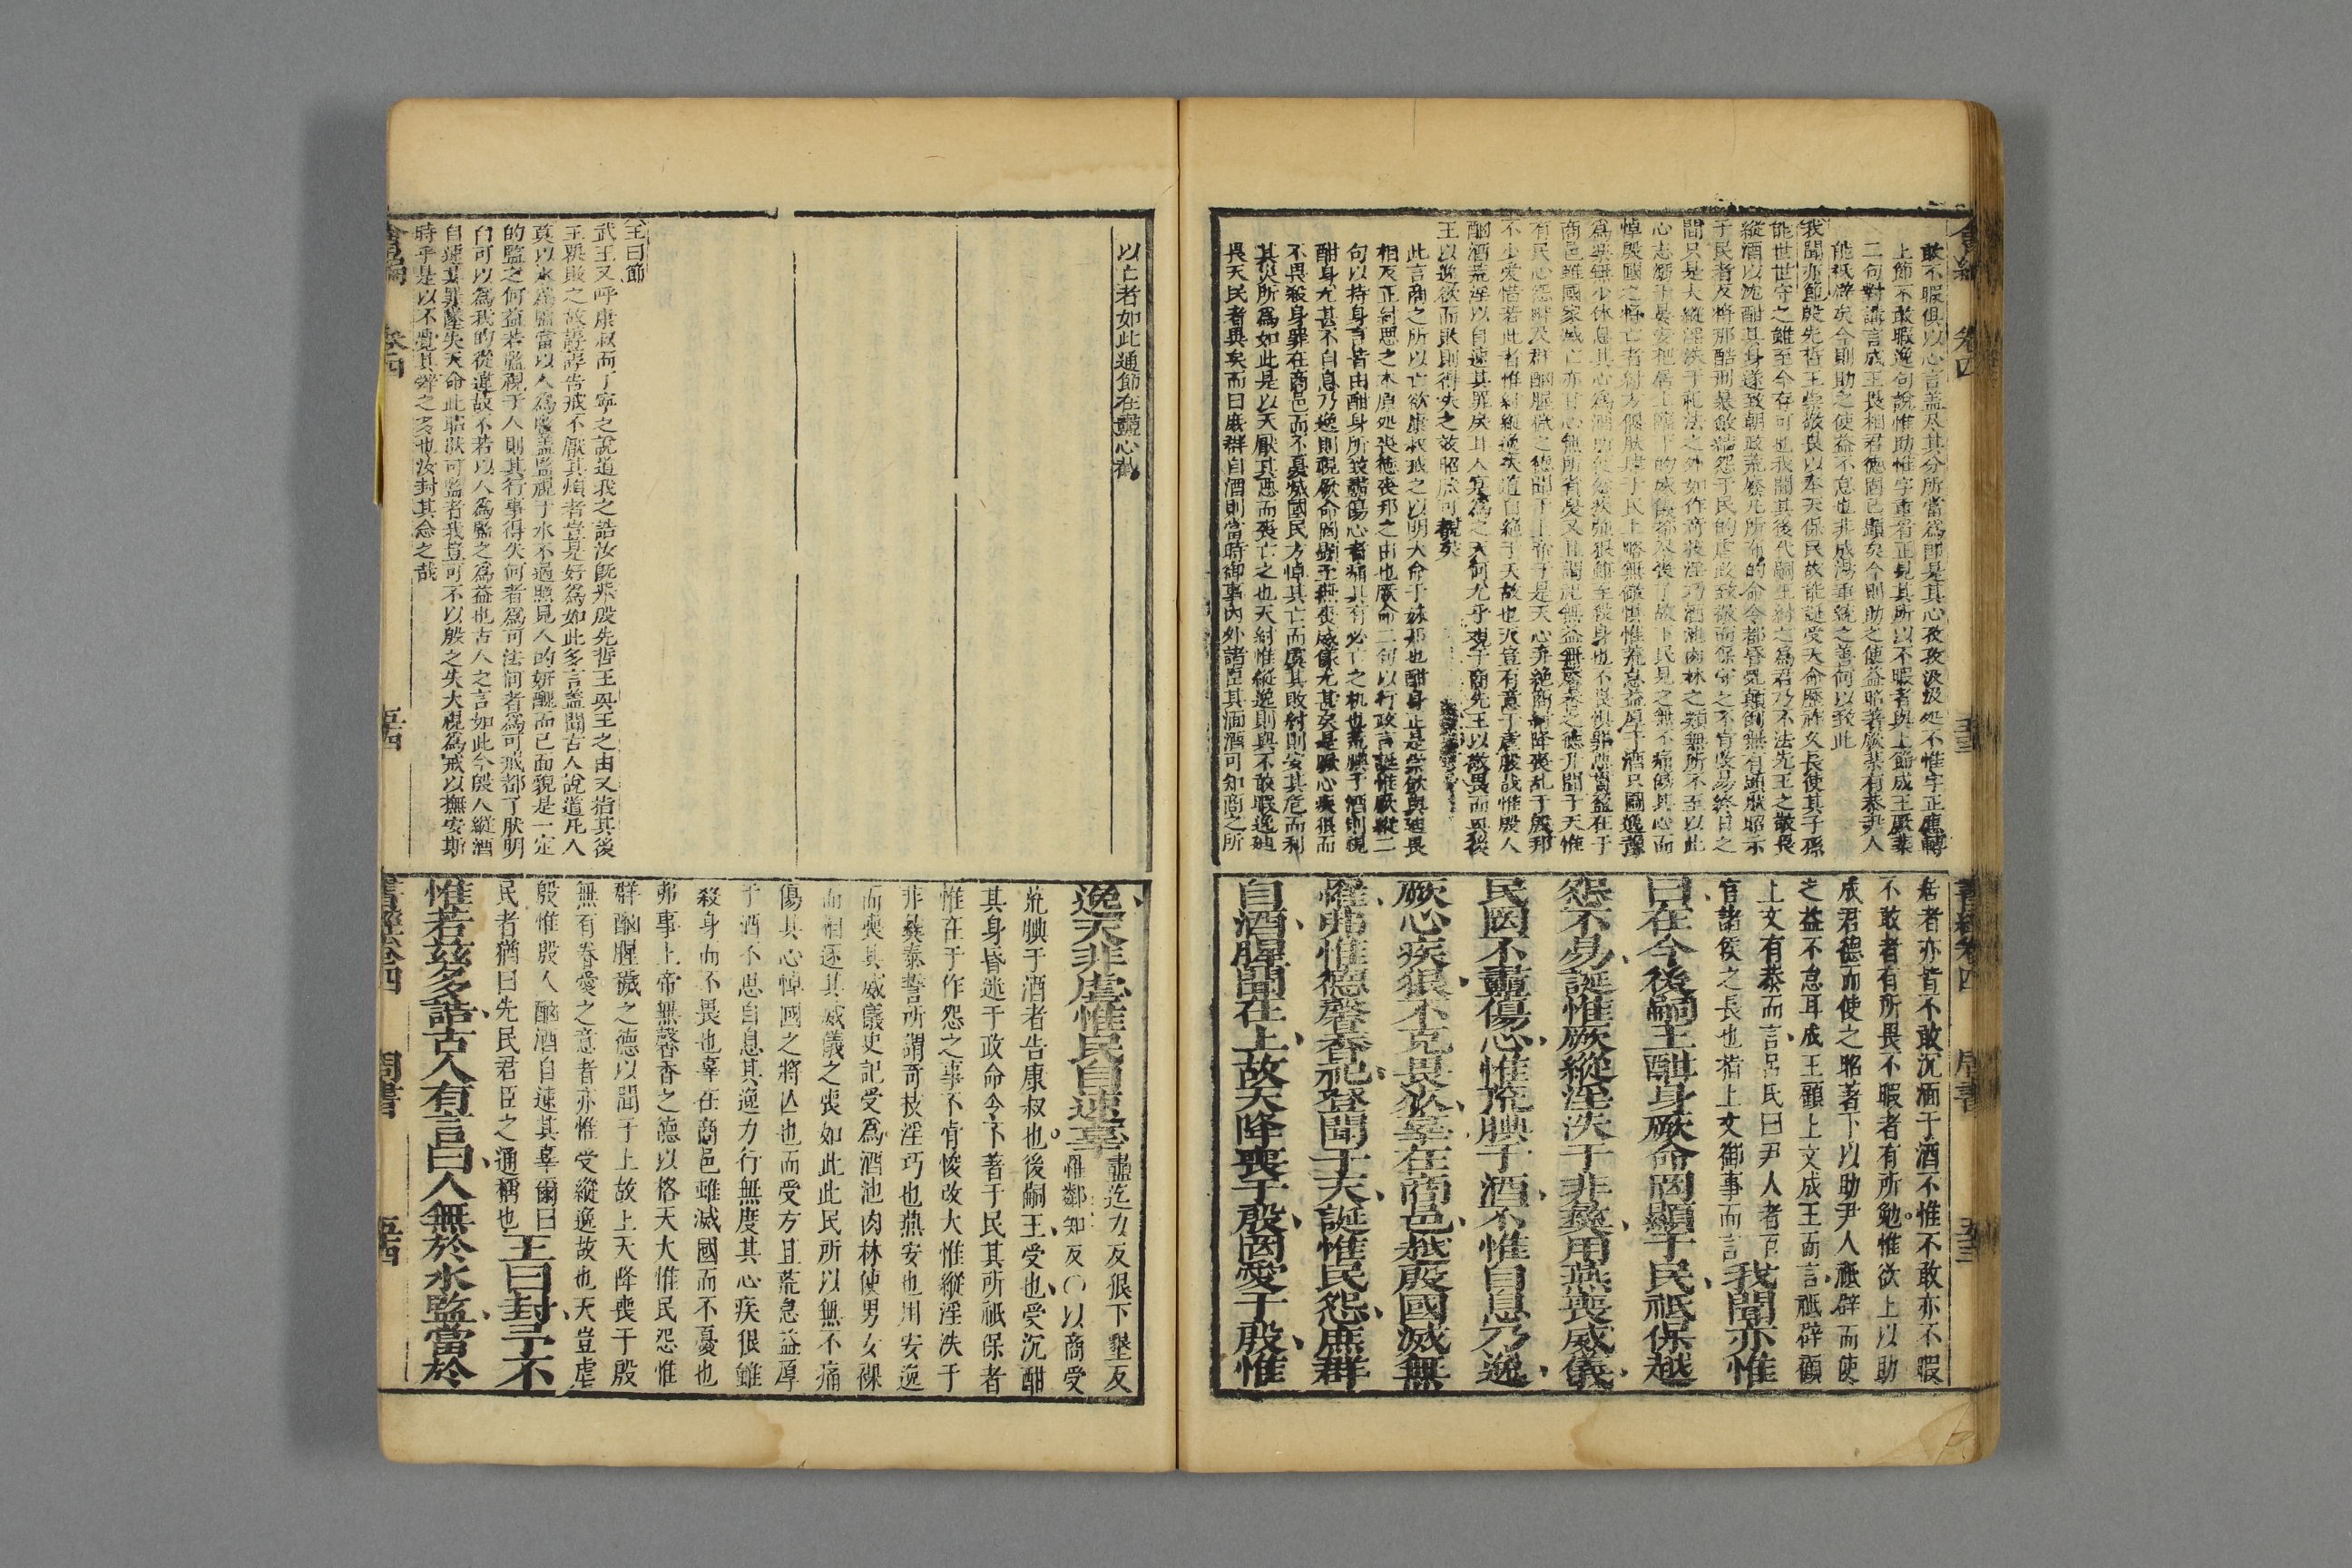 敢不暇俱以心言盖尽其分所當為即是其心孜孜汲汲处不惟字正應轉
上節不敢暇逸句說惟助惟字重看正見其所以不暇者與上節成王厥棐
二句對講言成王畏相君德固已顯矣今則助之使益昭著厥棐有恭尹人
能祗辟矣今則助之使益不怠也非成湯垂統之善何以致此
我聞亦節殷先哲王崇敬畏以奉天保民故能誕受天命歷祚久長使其子孫
能世世守之雖至今存可也我聞其後代嗣王紂之為君乃不法先王之敬畏
縱酒以沈酣其身遂致朝政荒廢凡所布的命令都昏覺顛倒無有顯然昭示
于民者反將那酷刑暴斂結怨于民的虐政
間只是大縱淫泆于非法之外如作奇技淫巧酒池肉林之類無所不至以此
心志
悼殷國之將亡者紂方偃然肆于民上略無儆惧惟荒怠益厚于酒只圖逸豫
商邑雖國家滅亡亦
有民心怨
不少愛惜若此者惟紂縱逸失道自絕于天故也天豈有意于虐殷哉惟殷人
酗酒荒淫以自速其罪戾耳人實為之天何尤乎觀于商先王以敬畏而興後
王以逸欲而敗則得失之效昭然可覩矣
此言商之所以亡欲康叔戒之以明大命于妹邦也酣身正是崇飲與迪畏
相反正紂惡之本原処喪德喪邦之由也厥命二句以行政言誕惟厥縱二
句以持身言皆由酣身所致
酣身尤甚不自息乃逸則視厥命罔顯
不畏殺身罪在商邑而不憂滅國民方悼其亡而厲其敗紂則安其危而利
其災所為如此是以天厭其惡而喪亡之也天紂惟縱逸則與不敢暇逸迪
畏天民者異矣而曰庶群自酒則當時御事內外諸臣其湎酒可知商之所
書經卷四 周書 五三
居者亦皆不敢沉湎于酒不惟不敢亦不暇
不敢者有所畏不暇者有所勉惟欲上以助
成君德而使之昭著下以助尹人祗辟而使
之益不怠耳成王顧上文成王而言祗辟顧
上文有恭而言呂氏曰尹人者百
官諸侯之長也指上文御事而言 我聞亦惟
曰在今後嗣王酣身厥命罔顯于民祗保越
怨不易誕惟厥縱淫泆于非彝用燕喪威儀
民罔不衋傷心惟荒腆于酒不惟自息乃逸
厥心疾狠不克畏死辜在商邑越殷國滅無
罹弗惟德馨香祀登聞于天誕惟民怨庶群
自酒腥聞在上故天降喪于殷罔愛于殷惟
以亡者如此通節在衋心截
王曰節
武王又呼康叔而丁寧之說道我之誥汝既举殷先哲王興王之由又指其後
王喪敗之故諄諄告戒不厭其煩者豈是好為如此多言盖聞古人說道凡人
莫以水為監當以人為監盖監視于水不過照見人的妍醜而已面貌是一定
的監之何益若監視于人則其行事得失何者為可法何者為可戒都了然明
白可以為我的從違故不若以人為監之為益也古人之言如此今殷人縱酒
自速其罪墜失天命此昭然可監者我豈可不以殷之失大視為戒以撫安斯
時乎是以不覺其辭之多也汝封其念之哉
卷四 五四
逸天非虐惟民自速辜 衋迄力反狠下墾反
罹鄰知反〇以商受
荒腆于酒者告康叔也後嗣王受也受沉酣
其身昏迷于政命令不著于民其所祗保者
惟在于作怨之事不肯悛改大惟縱淫泆于
非彝泰誓所謂奇技淫巧也燕安也用安逸
而喪其威儀史記受為酒池肉林使男女裸
而相逐其威儀之喪如此此民所以無不痛
傷其心悼國之將亡也而受方且荒怠益厚
于酒不思自息其逸力行無度其心疾很雖
殺身而不畏也辜在商邑雖滅國而不憂也
弗事上帝無馨香之德以格天大惟民怨惟
群酗腥穢之德以聞于上故上天降喪于殷
無有眷愛之意者亦惟受縱逸故也天豈虐
殷惟殷人酗酒自速其辜爾曰
民者猶曰先民君臣之通稱也 王曰封予不
惟若茲多誥古人有言曰人無於水監當於
書經卷四 周書 五四